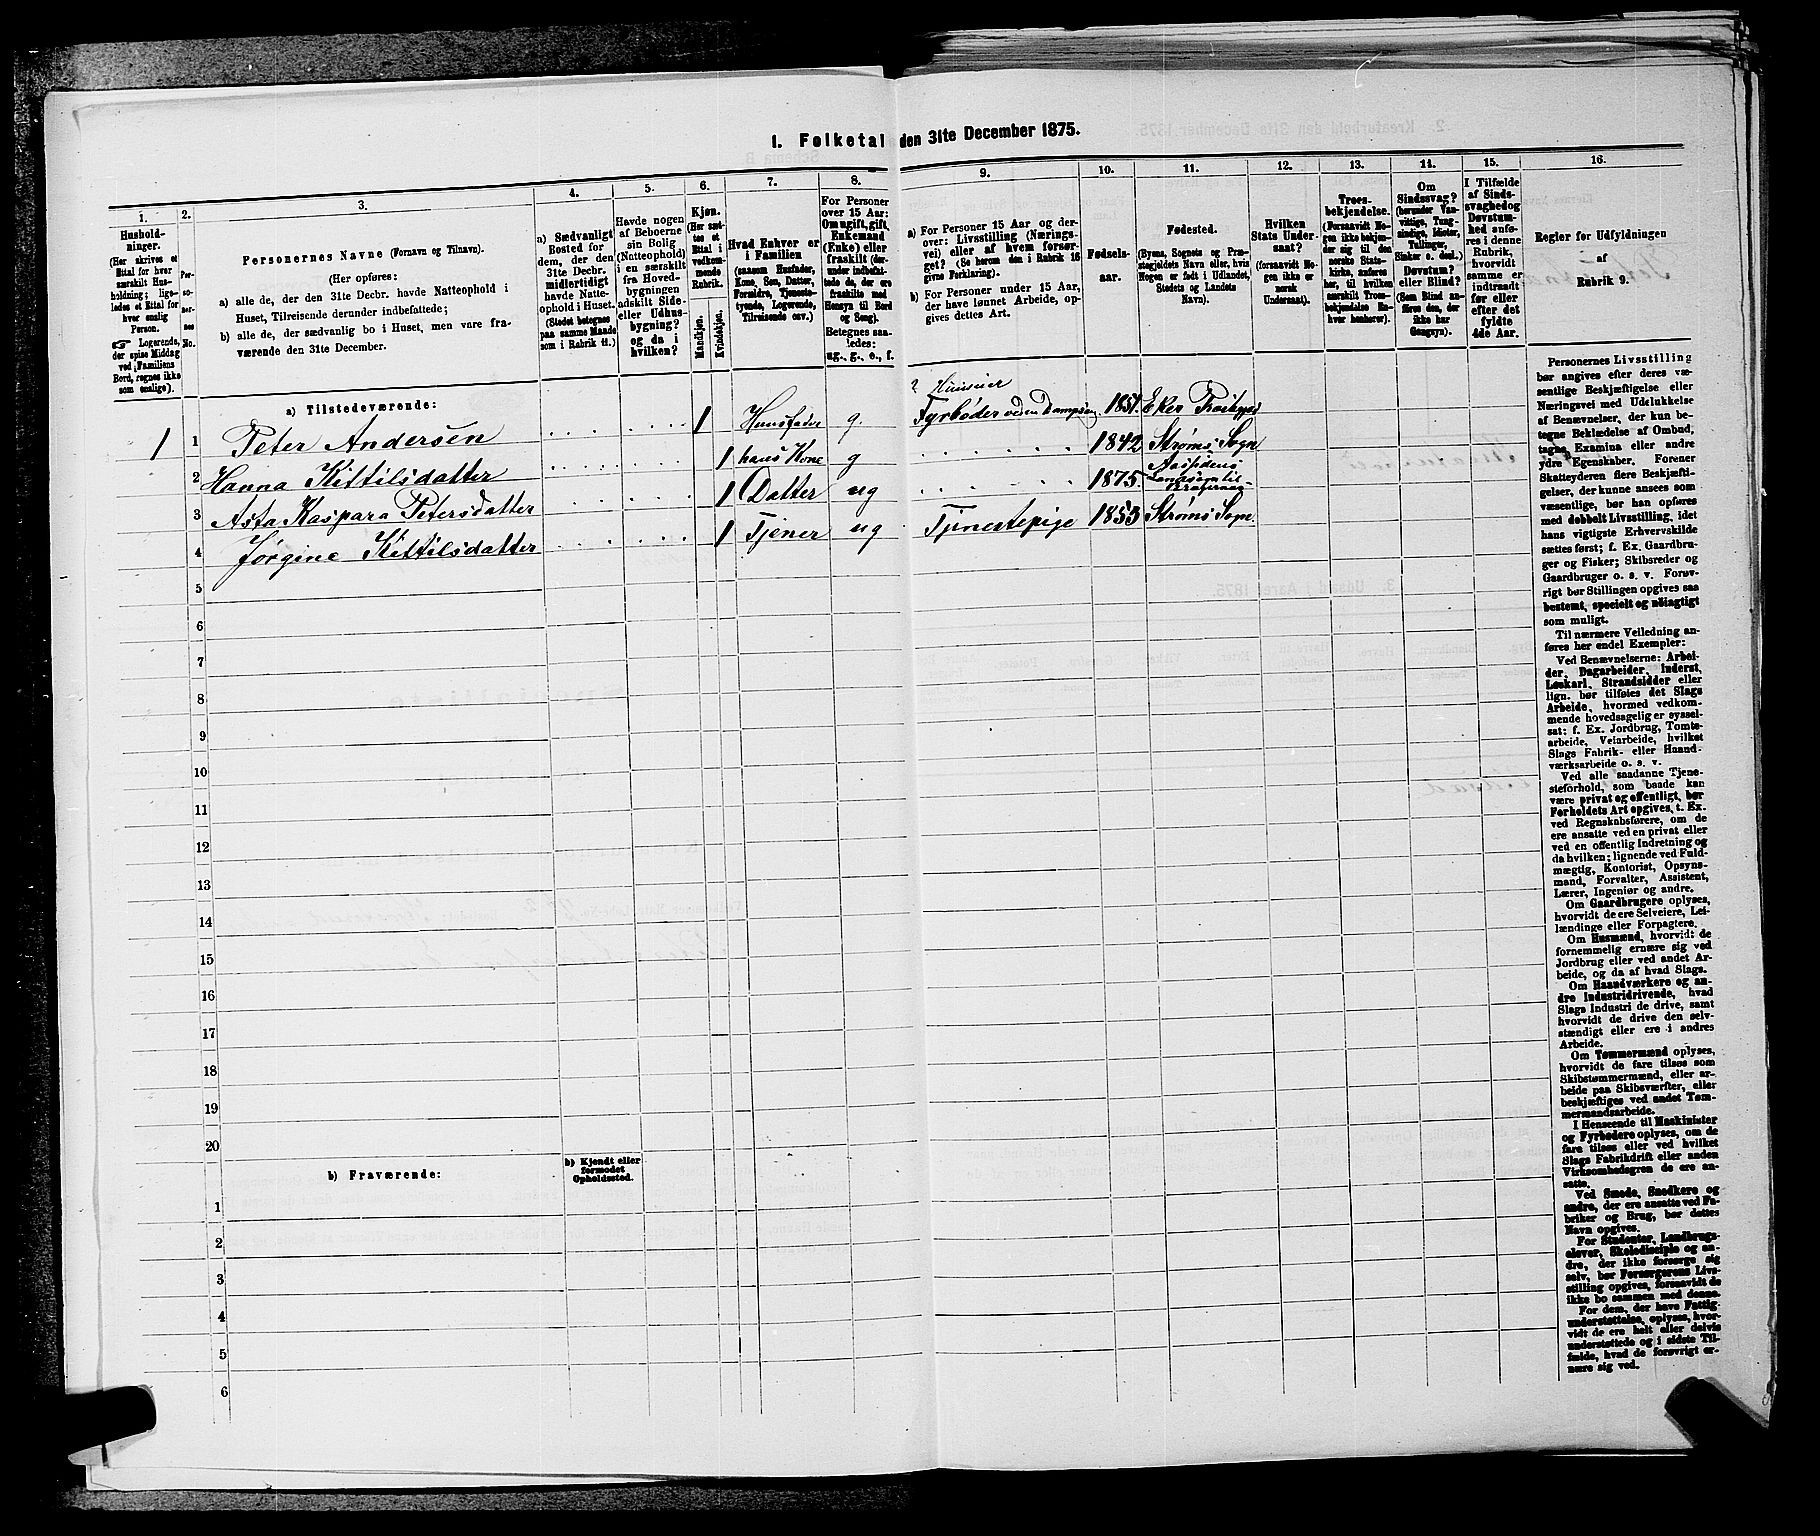 1. Folketal den 31te December 1875.
1. 2. 3. 4. 5. 6. 7. 8. 9. 10. 11. 12. 13. 14. 15. 16.
Hushold-
ninger.
(Her skrives et
Ettal for hver
særskilt Hus-
holdning; lige-
ledes et Ettal for
hver enslig
Person.
☞ Logerende,
der spise Middag
ved Familiens
Bord, regnes ikke
som enslige).
Per-
so-
ner-
nes
No.
Personernes Navne (Fornavn og Tilnavn).
(Her opføres:
a) alle de, der den 31te Decbr. havde Natteophold i
Huset, Tilreisende derunder indbefattede;
b) alle de, der sædvanlig bo i Huset, men vare fra-
værende den 31te December.
a) Sædvanligt
Bosted for
dem, der den
31te Decbr.
midlertidigt
havde Natte-
ophold i Huset.
(Stedet betegnes
paa samme Maade
som i Rubrik 11.)
Havde nogen
af Beboerne
sin Bolig
(Natteophold)
i en særskilt
fra Hoved-
bygningen
adskilt Side-
eller Udhus-
bygning?
og da i
hvilken?
Kjøn.
(Her sæt-
tes et
Ettal i
vedkom-
mende
Rubrik.
Mandkjøn.
Kvindekjøn.
Hvad Enhver er
i Familien
(saasom Husfader,
Kone, Søn, Datter,
Forældre, Tjeneste-
tyende, Logerende,
Tilreisende osv.)
For Personer
over 15 Aar:
Om ugift, gift,
Enkemand
(Enke) eller
fraskilt (der-
under indbefat-
tede de, der
ere fraskilte med
Hensyn til Bord
og Seng).
Betegnes saa-
ledes:
ug., g., e., f.
a) For Personer 15 Aar og der-
over: Livsstilling (Nærings-
vei) eller af hvem forsør-
get? (Se herom den i Rubrik 16
givne Forklaring).
b) For Personer under 15 Aar,
der have lønnet Arbeide, op-
gives dettes Art.
Fødsels-
aar.
Fødested.
(Byens, Sognets og Præ-
stegjeldets Navn eller, hvis
Nogen er født i Udlandet,
Stedets og Landets
Navn).
Hvilken
Stats Under-
saat?
(forsaavidt No-
gen ikke er
norsk
Undersaat).
Troes-
bekjendelse.
(Forsaavidt No-
gen ikke bekjen-
der sig til den
norske Stats-
kirke, anføres
her, til hvilken
særskilt Troes-
bekjendelse En-
hver henhører).
Om
Sindssvag?
(herunder Van-
vittige, Tung-
sindige, Idioter,
Tullinger,
Sinker o. desl.)
Døvstum?
eller Blind?
(Som Blind an-
føres den, der
ikke har
Gangsyn).
I Tilfælde
af Sinds-
svaghed og
Døvstum-
hed anfø-
res i denne
Rubrik,
hvorvidt
samme er
indtraadt
før eller
efter det
fyldte
4de Aar.
Regler for Udfyldningen
af
Rubrik 9.
a) Tilstedeværende:
1 1 Peter Andersen 1 Huusfader g. Huuseier Fyrbøder 1851. Eker
2 Hanna Kittilsdatter 1 hans Kone g 1842 Strøms Sogn
3 Asta Kaspara Petersdatter 1 Datter ug 1875.
4 Jørgine Kittilsdatter 1 Tjener ug Tjenestepige 1853 Strøms Sogn.
5
6
7
8
9
10
11
12
13
14
15
16
17
18
19
20
b) Fraværende:
b) Kjendt eller
formodet
Opholdssted.
1
2
3
4
5
6
Personernes Livsstilling
bør angives efter deres væ-
sentlige Beskjæftigelse eller
Næringsvei med Udelukkelse
af Benævnelser, der kun be-
tegne Beklædelse af Ombud,
tagne Examina eller andre
ydre Egenskaber. Forener
Skatteyderen flere Beskjæfti-
gelser, der kunne ansees som
væsentlige, bør han opføres
med dobbelt Livsstilling, idet
hans vigtigste Erhvervskilde
sættes først; f. Ex. Gaardbru-
ger og Fisker; Skibsreder og
Gaardbruger o. s. v. Forøv-
rigt bør Stillingen opgives saa
bestemt, specielt og nøiagtigt
som muligt.
Til nærmere Veiledning an-
føres her endel Exempler:
Ved Benævnelserne: Arbei-
der, Dagarbeider, Inderst,
Løskarl, Strandsidder eller
lign. bør tilføies det Slags
Arbeide, hvormed vedkom-
mende hovedsagelig er syssel-
sat; f. Ex. Jordbrug, Tomte-
arbeide, Veiarbeide, hvilket
Slags Fabrik- eller Haand-
værksarbeide o. s. v.
Ved alle saadanne Tjene-
steforhold, som baade kan
være privat og offentligt, bør
Forholdets Art opgives, t. Ex.
ved Regnskabsførere, om de
ere ansatte ved en privat eller
ved en offentlig Indretning og
da hvilken; lignende ved Fuld-
mægtig, Kontorist, Opsyns-
mand, Forvalter, Assistent,
Lærer, Ingeniør og andre.
Om Gaardbrugere oplyses,
hvorvidt de ere Selveiere, Lei-
lændinge eller Forpagtere.
Om Husmænd, hvorvidt de
fornemmelig ernære sig ved
Jordbrug eller ved andet Ar-
beide, og da af hvad Slags.
Om Haandværkere og an-
dre Industridrivende, hvad
Slags Industri de drive, samt
hvorvidt de drive den selv-
stændigt eller ere i andres
Arbeide.
Om Tømmermænd oplyses,
hvorvidt de fare tilsøs som
Skibstømmermænd, eller ar-
beide paa Skibsværfter, eller
beskjæftiges ved andet Tøm-
mermandsarbeide.
I Henseende til Maskinister
og Fyrbødere oplyses, om de
fare tilsøs eller ved hvilket
Slags Fabrikdrift eller anden
Virksomhedsgren de ere an-
satte.
Ved Smede, Snedkere og
andre, der ere ansatte ved Fa-
briker og Brug, bør dettes
Navn opgives.
For Studenter, Landbrugs-
elever, Skoledisciple og an-
dre, der ikke forsørge sig
selv, bør Forsørgerens Livs-
stilling opgives, forsaavidt de
ikke bo sammen med denne.
For dem, der have Fattig-
understøttelse, oplyses, hvor-
vidt de ere helt eller delvis
understøttede og i sidste Til-
fælde, hvad de forøvrigt er-
nære sig ved.